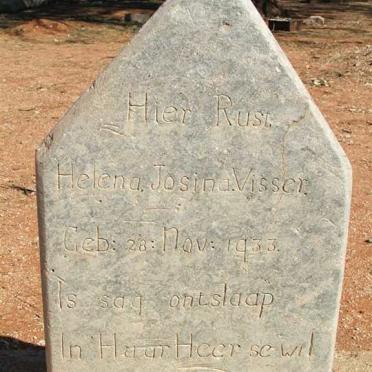 Hier Rust.
Helena. Josina. Visser.
Geb: 28: Nov: 1933.
Is sag ontslaap
In Haar Heer se wil